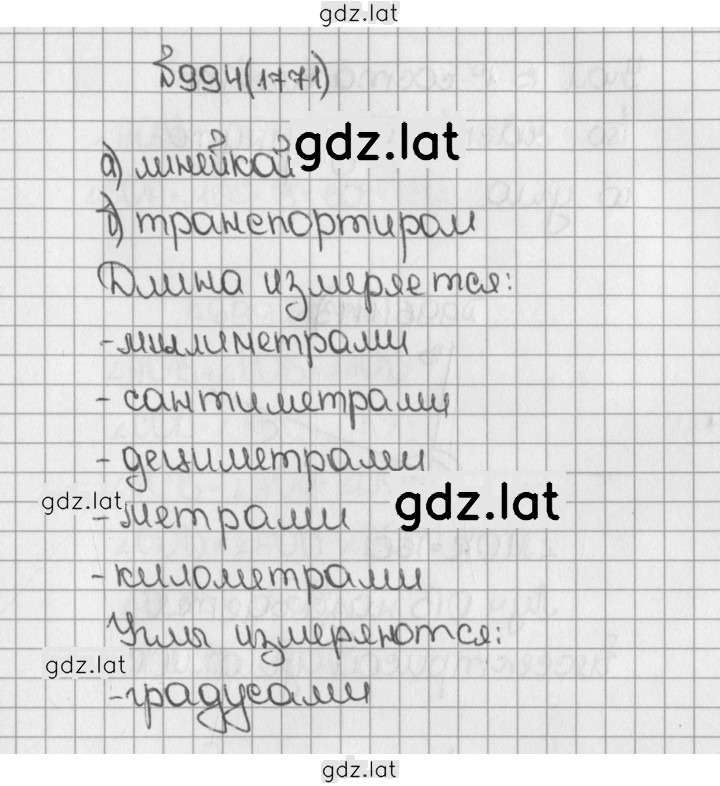 gdz.lat
№994(1771)
а) линейкой gdz.lat
б) транспортиром
Длина измеряется:
-милиметрами
- сантиметрами
- дециметрами
gdz.lat gdz.lat
- метрами
- километрами
Углы измеряются:
gdz.lat
-градусами
gdz.lat